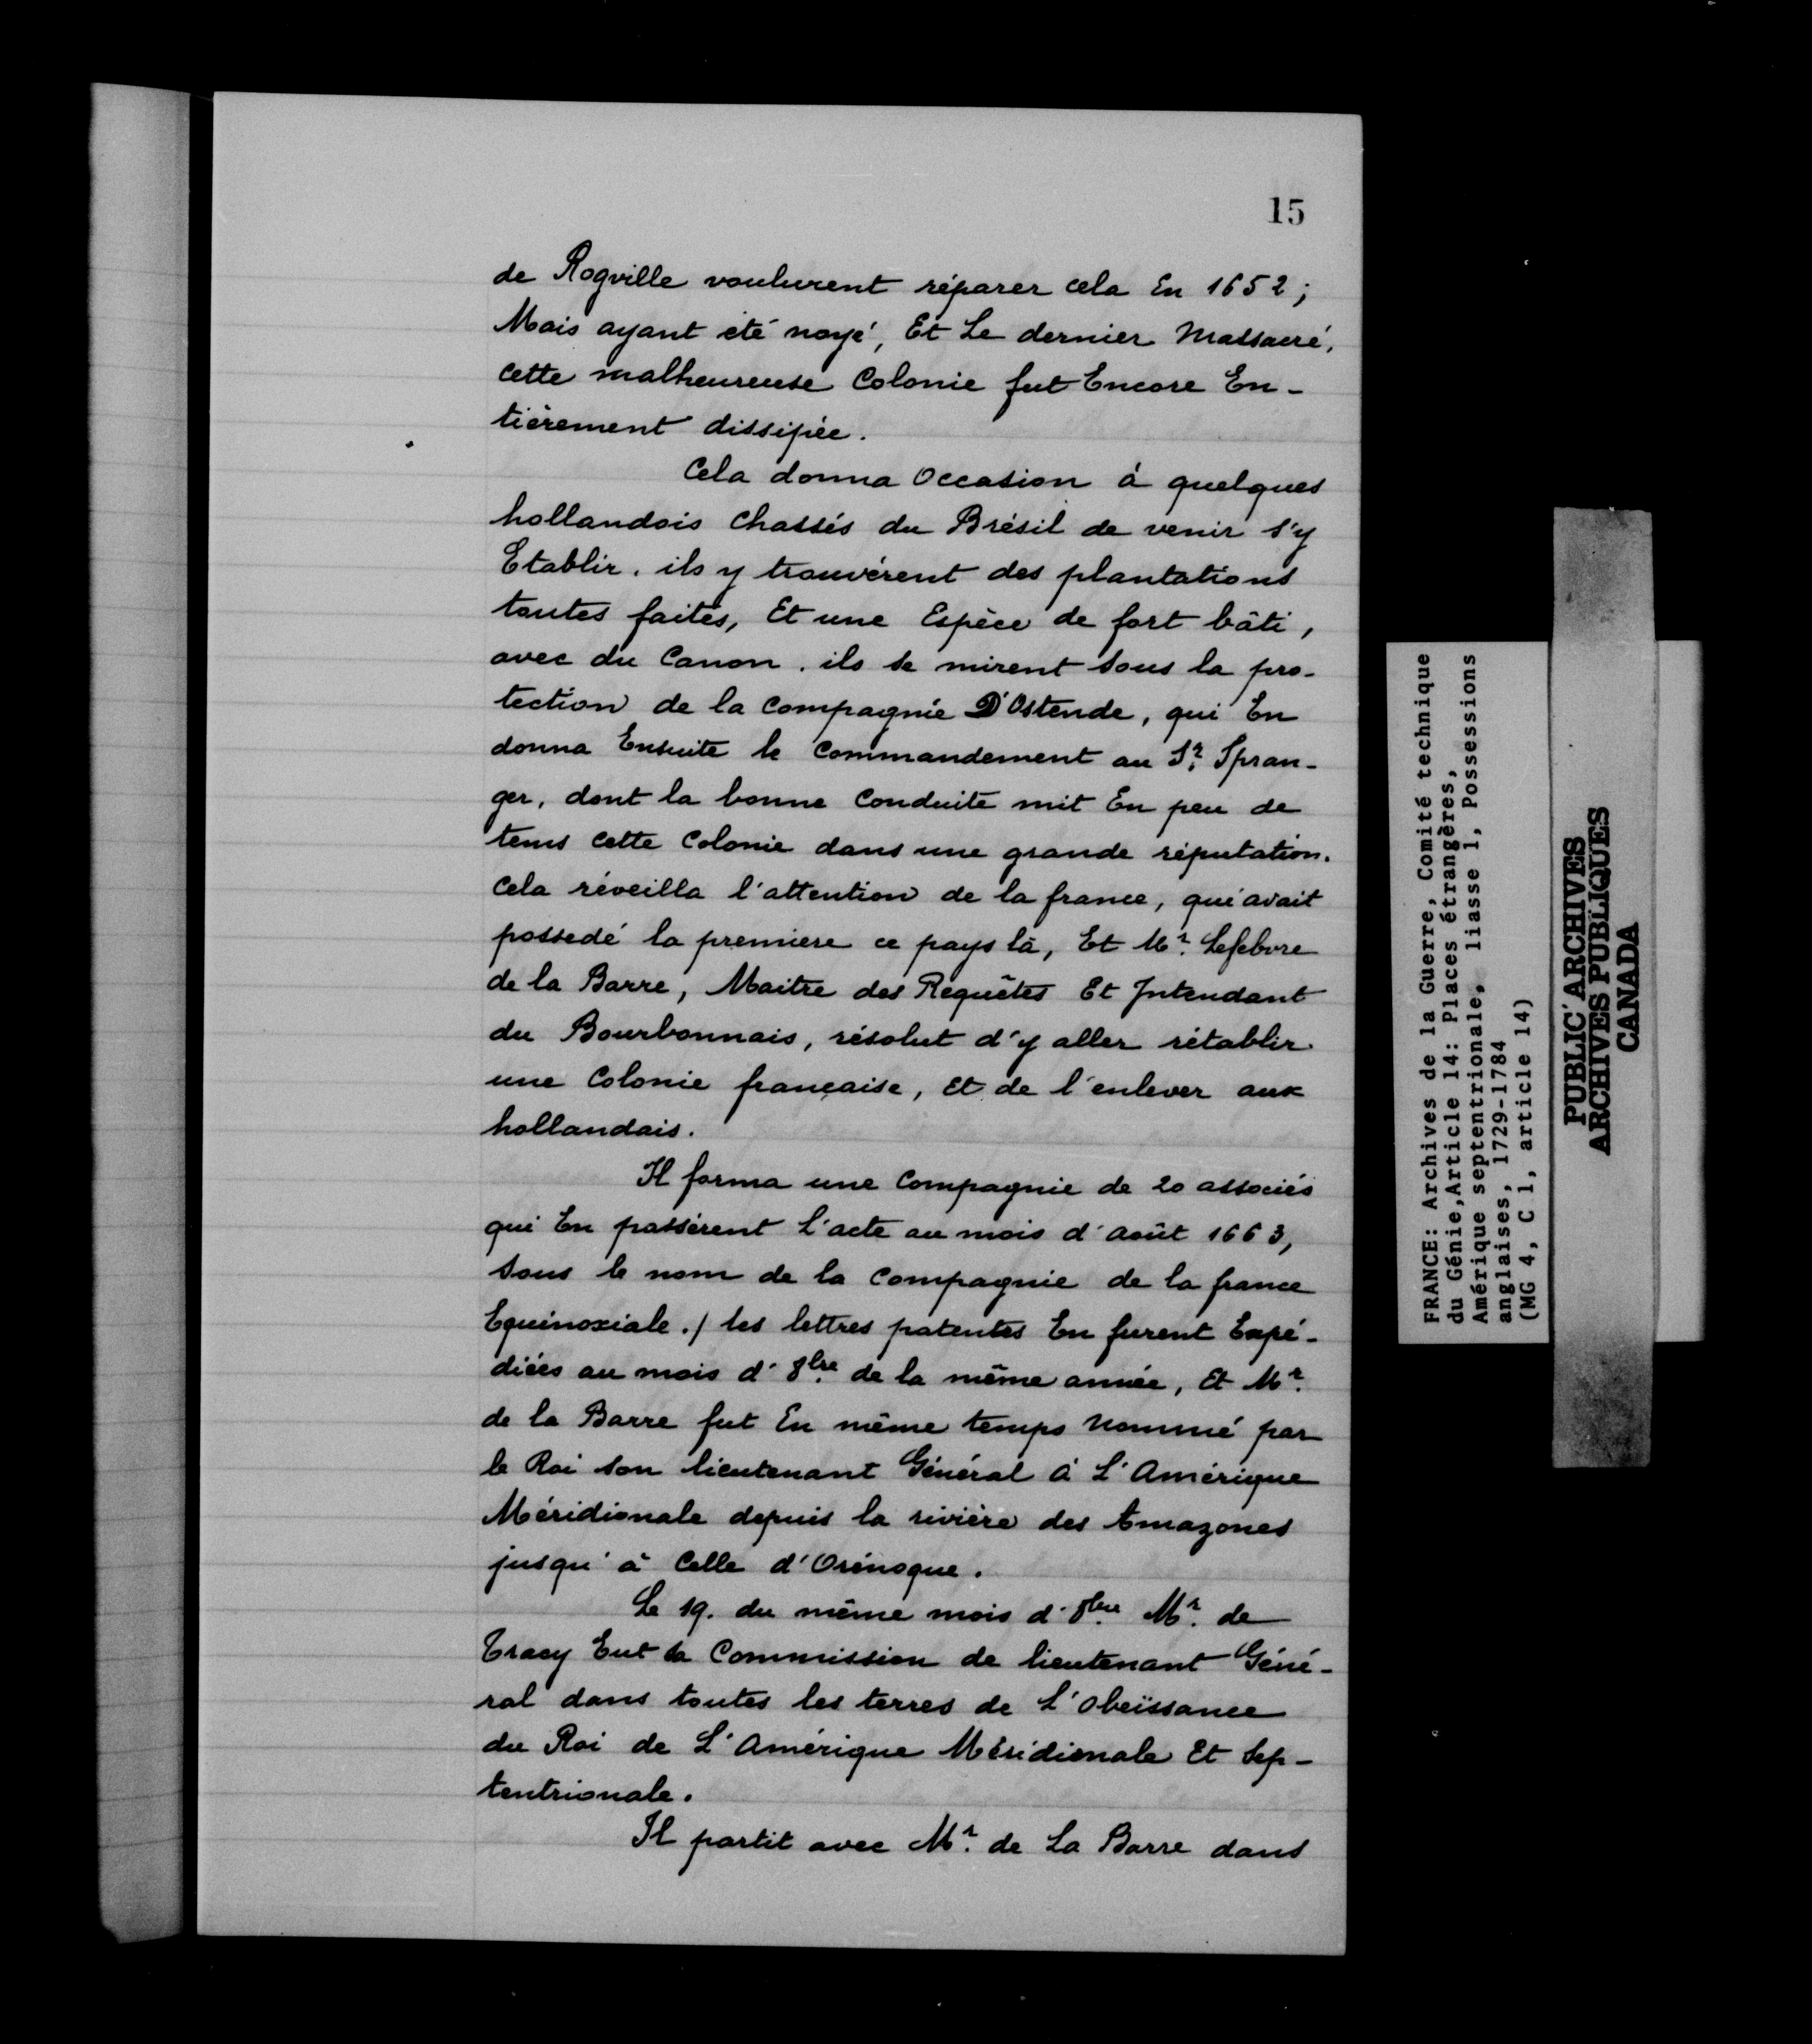 15
de Rogville voulurent réparer cela En 1652;
Mais ayant été noyé, Et Le dernier Massacré,
cette malheureuse Colonie fut Encore En-
tièrement dissipée.
Cela donna Occasion à quelques
hollandois chassés du Brésil de venir s'y
Etablir. ils y trouvèrent des plantations
toutes faites, Et une Espèce de fort bâti,
avec du Canon. ils se mirent sous la pro-
tection de la Compagnie D'Ostende, qui En
donna Ensuite le Commandement au Sr. Spran-
ger, dont la bonne Conduite mit En peu de
tems cette Colonie dans une grande réputation.
Cela réveilla l'attention de la france, qui avait
possedé la premiere ce pays là, Et Mr. Lefebvre
de la Barre, Maitre des Requêtes Et Intendant
du Bourbonnais, résolut d'y aller rétablir
une Colonie française, Et de l'enlever aux
hollandais.
Il forma une Compagnie de 20 associés
qui En passèrent l'acte au mois d'août 1663,
sous le nom de la Compagnie de la france
Equinoxiale ./ les lettres patentes En furent Expé-
diées au mois d'8bre. de la même année, Et Mr.
de la Barre fut En même temps Nommé par
le Roi son lieutenant Général à L'Amérique
Méridionale depuis la rivière des Amazones
jusqu'à Celle d'Orénoque.
Le 19. du même mois d'8bre. Mr. de
Tracy Eut la Commission de lieutenant Géné-
ral dans toutes les terres de L'obeïssance
du Roi de L'Amérique Méridionale Et Sep-
tentrionale.
Il partit avec Mr. de La Barre dans
FRANCE: Archives de la Guerre, Comité technique
du Génie, Article 14: Places étrangères,
Amérique septentrionale, liasse 1, Possessions
anglaises, 1729-1784
(MG 4, C 1, article 14)
PUBLIC ARCHIVES
ARCHIVES PUBLIQUES
CANADA